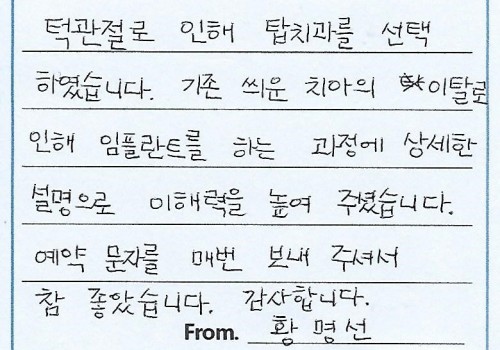 턱관절로 인해 탑치과를 선택
하였습니다. 기존 씌운 치아의 이탈로
인해 임플란트를 하는 과정에 상세한
설명으로 이해력을 높여 주셨습니다.
예약 문자를 매번 보내 주셔서
참 좋았습니다. 감사합니다.
From. 황명선